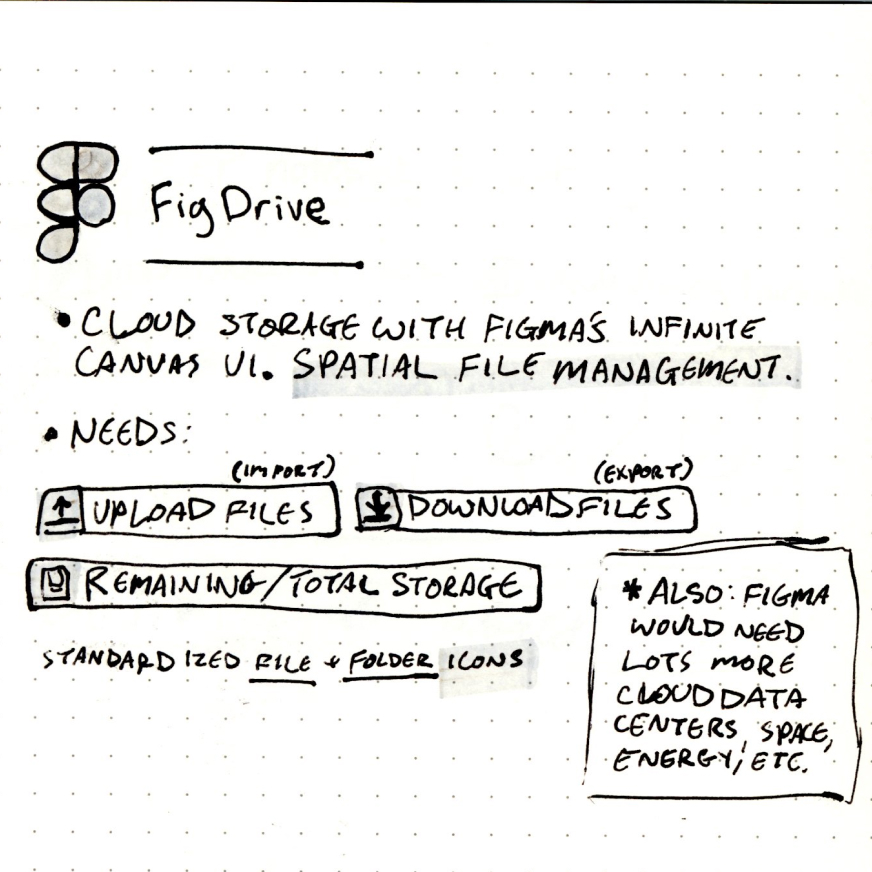 Fig Drive
• CLOUD STORAGE WITH FIGMA'S INFINITE
CANVAS UI. SPATIAL FILE MANAGEMENT.
• NEEDS:
(IMPORT)
UPLOAD FILES
(EXPORT)
DOWNLOAD FILES
REMAINING/TOTAL STORAGE
STANDARDIZED FILE & FOLDER ICONS
* ALSO: FIGMA
WOULD NEED
LOTS MORE
CLOUD DATA
CENTERS, SPACE,
ENERGY, ETC.